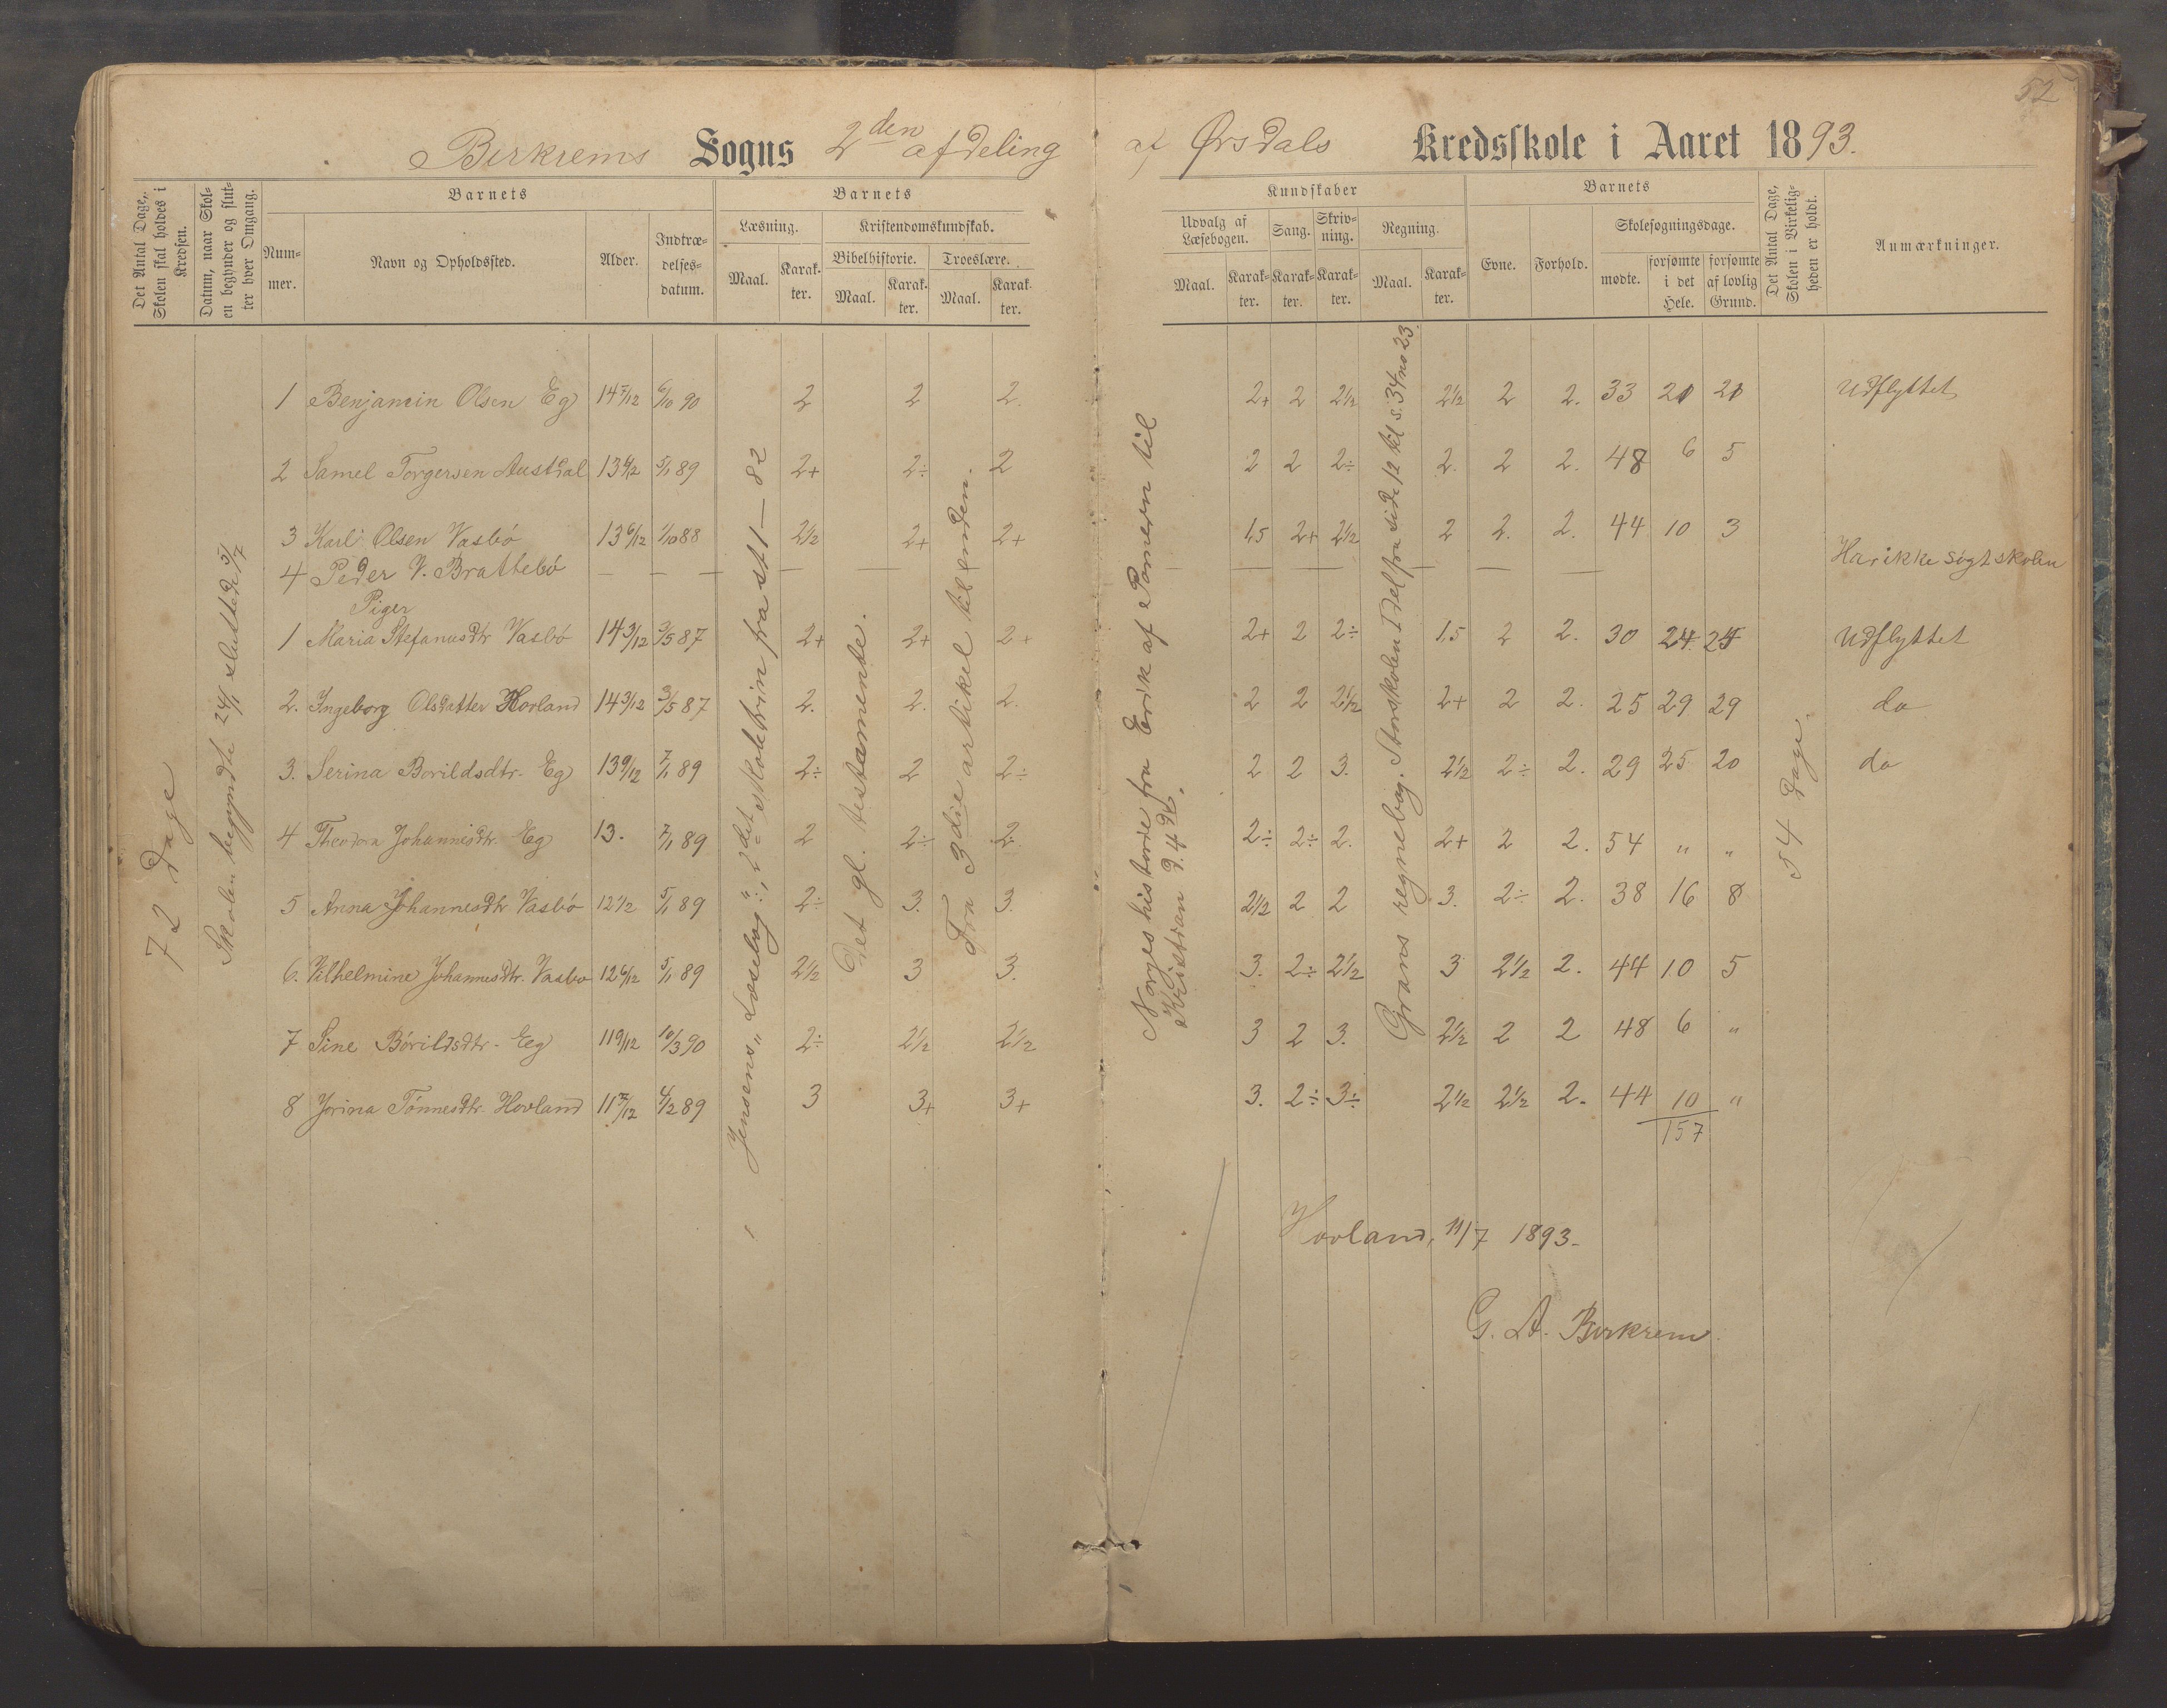 52
Birkrems Sogns 2den afdeling af Ørsdals Kredsskole i Aaret 1893.
Det Antal Dage, Skolen skal holdes i Kredsen.
Datum, naar Skolen begynder og slutter hver Omgang.
Barnets
Nummer.
Navn og Opholdssted.
Alder.
Indtrædelsesdatum.
Barnets
Læsning.
Maal.
Karakter.
Kristendomskundskab.
Bibelhistorie.
Maal.
Karakter.
Troeslære.
Maal.
Karakter.
Kundskaber
Udvalg af Læsebogen.
Maal.
Karakter.
Sang.
Karakter.
Skrivning.
Karakter.
Regning.
Maal.
Karakter.
Barnets
Evne.
Forhold.
Skolesøgningsdage.
mødte.
forsømte i det Hele.
forsømte af lovlig Grund.
Det Antal Dage, Skolen i Virkeligheden er holdt.
Anmærkninger.
72 Dage
Skolen begyndte 24/1 sluttede 5/7
Jensens „Læsebog“: 2det skoletrin fra st 1 — 82
Det gl. testamente.
Fra 3die artikel til enden.
Norges historie fra Erik af Pomern til
Kristian d. 4de.
Grans regnebog. Storskolen I Del fra side 12 til s. 34 no 23
54 Dage
1 Benjamin Olsen Eg 14 7/12 6/10 90 2 2 2. 2+ 2 2½ 2½ 2 2. 33 21 21 Udflyttet
2 Samel Torgersen Austdal 13 4/2 5/1 89 2+ 2÷ 2 2 2 2÷ 2. 2 2. 48 6 5
3 Karl Olsen Vasbø 13 6/12 1/10 88 2½ 2+ 2+ 1,5 2+ 2½ 2 2. 2. 44 10 3
4 Peder V. Brattebø — — — — — — — — — — — Har ikke søgt skolen
Piger
1 Maria Stefanusdtr Vasbø 14 3/12 3/5 87 2+ 2+ 2+ 2+ 2 2÷ 1.5 2 2. 30 24 24 Udflyttet
2. Ingeborg Olsdatter Hovland 14 3/12 3/5 87 2. 2. 2. 2 2 2½ 2+ 2 2. 25 29 29 do
3. Serina Borildsdtr. Eg 13 9/12 7/1 89 2÷ 2 2÷ 2 2 3. 2½ 2÷ 2. 29 25 20 do
4 Theodora Johannisdtr. Eg 13. 7/1 89 2 2÷ 2÷ 2÷ 2÷ 2. 2+ 2 2. 54 „ „
5 Anna Johannesdtr Vasbø 12 ½ 5/1 89 2÷ 3. 3. 2½ 2 2 3. 2÷ 2. 38 16 8
6. Vilhelmine Johannesdtr. Vasbø 12 6/12 5/1 89 2½ 3 3. 3. 2÷ 2½ 3 2½ 2. 44 10 5
7 Sine Børildsdtr - Eg 11 9/12 10/3 90 2÷ 2½ 2½ 3 2 3. 2½ 2 2 48 6 „
8 Jorina Tönnesdtr. Hovland 11 7/12 4/2 89 3 3+ 3+ 3. 2÷ 3÷ 2½ 2½ 2. 44 10 „
157
Hovland, 11/7 1893.
G. A. Birkrem